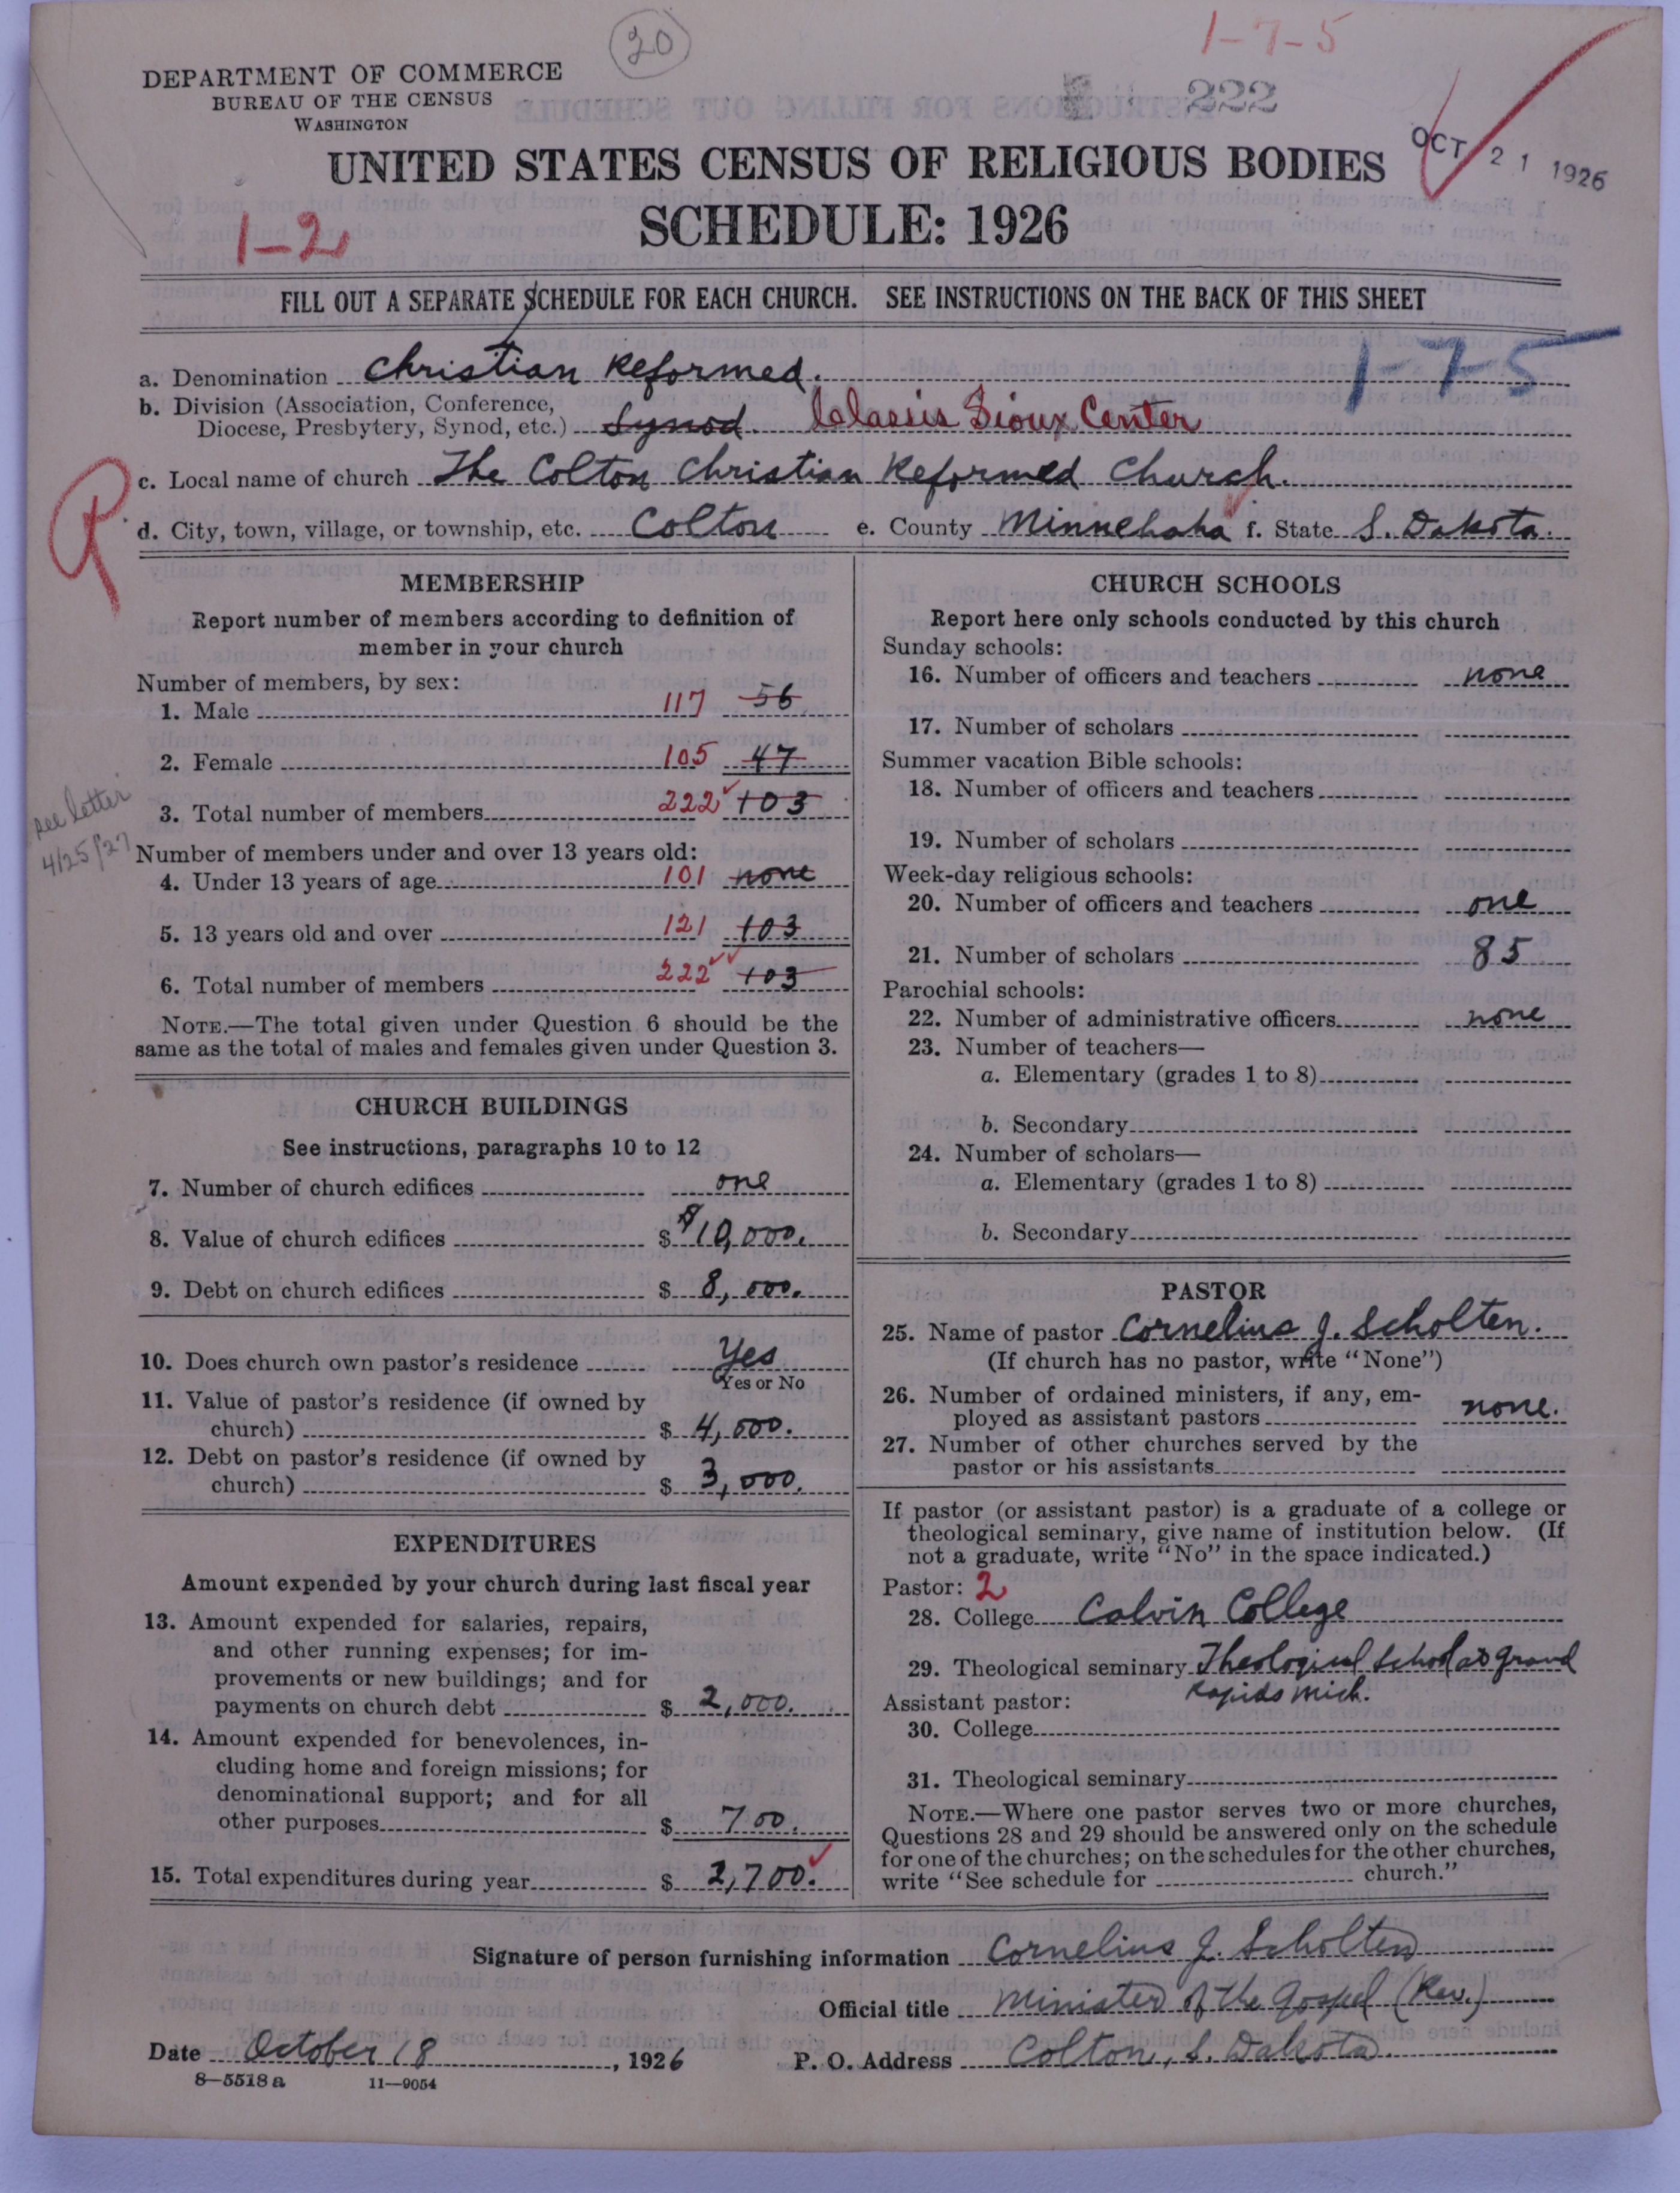 20
1-7-5
222
DEPARTMENT OF COMMERCE
BUREAU OF THE CENSUS
WASHINGTON
OCT 21 1926
UNITED STATES CENSUS OF RELIGIOUS BODIES
SCHEDULE: 1926
1-2
FILL OUT A SEPARATE SCHEDULE FOR EACH CHURCH. SEE INSTRUCTIONS ON THE BACK OF THIS SHEET
1-7-5
a. Denomination Christian Reformed.
b. Division (Association, Conference,
Diocese, Presbytery, Synod, etc.) Synod. Classis Sioux Center
R
c. Local name of church The Colton Christian Reformed Church.
d. City, town, village, or township, etc. Colton e. County Minnehaha f. State S. Dakota.
MEMBERSHIP
Report number of members according to definition of
member in your church
Number of members, by sex:
1. Male 117 56
2. Female 105 47
3. Total number of members 222 103
see letter
4/25/27
Number of members under and over 13 years old:
4. Under 13 years of age 101 none
5. 13 years old and over 121 103
6. Total number of members 222 103
NOTE.—The total given under Question 6 should be the
same as the total of males and females given under Question 3.
CHURCH BUILDINGS
See instructions, paragraphs 10 to 12
7. Number of church edifices one
8. Value of church edifices $ $10,000.
9. Debt on church edifices $ 8,000.
10. Does church own pastor's residence Yes
Yes or No
11. Value of pastor's residence (if owned by
church) $ 4,000.
12. Debt on pastor's residence (if owned by
church) $ 3,000.
EXPENDITURES
Amount expended by your church during last fiscal year
13. Amount expended for salaries, repairs,
and other running expenses; for im-
provements or new buildings; and for
payments on church debt $ 2,000.
14. Amount expended for benevolences, in-
cluding home and foreign missions; for
denominational support; and for all
other purposes $ 700.
15. Total expenditures during year $ 2,700.
CHURCH SCHOOLS
Report here only schools conducted by this church
Sunday schools:
16. Number of officers and teachers none
17. Number of scholars
Summer vacation Bible schools:
18. Number of officers and teachers
19. Number of scholars
Week-day religious schools:
20. Number of officers and teachers one
21. Number of scholars 85
Parochial schools:
22. Number of administrative officers none
23. Number of teachers—
a. Elementary (grades 1 to 8)
b. Secondary
24. Number of scholars—
a. Elementary (grades 1 to 8)
b. Secondary
PASTOR
25. Name of pastor Cornelius J. Scholten.
(If church has no pastor, write "None")
26. Number of ordained ministers, if any, em-
ployed as assistant pastors none.
27. Number of other churches served by the
pastor or his assistants
If pastor (or assistant pastor) is a graduate of a college or
theological seminary, give name of institution below. (If
not a graduate, write "No" in the space indicated.)
Pastor: 2
28. College Calvin College
29. Theological seminary Theological School at Grand
Rapids Mich.
Assistant pastor:
30. College
31. Theological seminary
NOTE.—Where one pastor serves two or more churches,
Questions 28 and 29 should be answered only on the schedule
for one of the churches; on the schedules for the other churches,
write "See schedule for church."
Signature of person furnishing information Cornelius J. Scholten
Official title Minister of the Gospel (Rev.)
Date October 18, 1926 P. O. Address Colton, S. Dakota.
8—5518a 11—9054